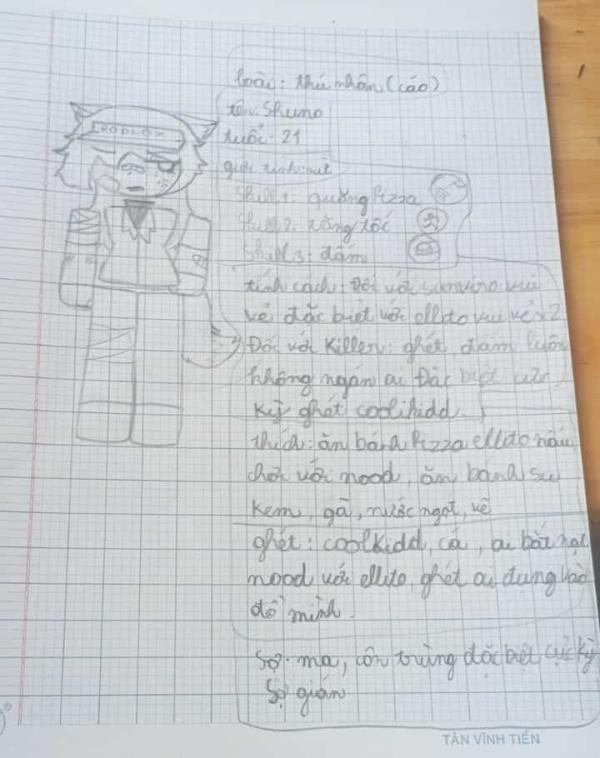 loài: thú nhân (cáo)
tên: Shuno
tuổi: 21
giới tính: nữ
Skill 1: quăng Pizza
Skill 2: tăng tốc
Skill 3: đấm
tính cách: Đối với vui
vẻ đặc biệt với ellito vui vẻ x2
Đối với Killer: ghét, đấm luôn
không ngán ai Đặc biệt cực
kỳ ghét coolikidd.
thích: ăn bánh Pizza ellito nấu
chơi với nood, ăn bánh su
kem, gà, nước ngọt, vẽ
ghét: coolkidd, cá, ai bắt nạt
nood với ellito, ghét ai đụng vào
đồ mình.
Sợ: ma, côn trùng đặc biệt cực kỳ
Sợ gián
TÂN VĨNH TIẾN